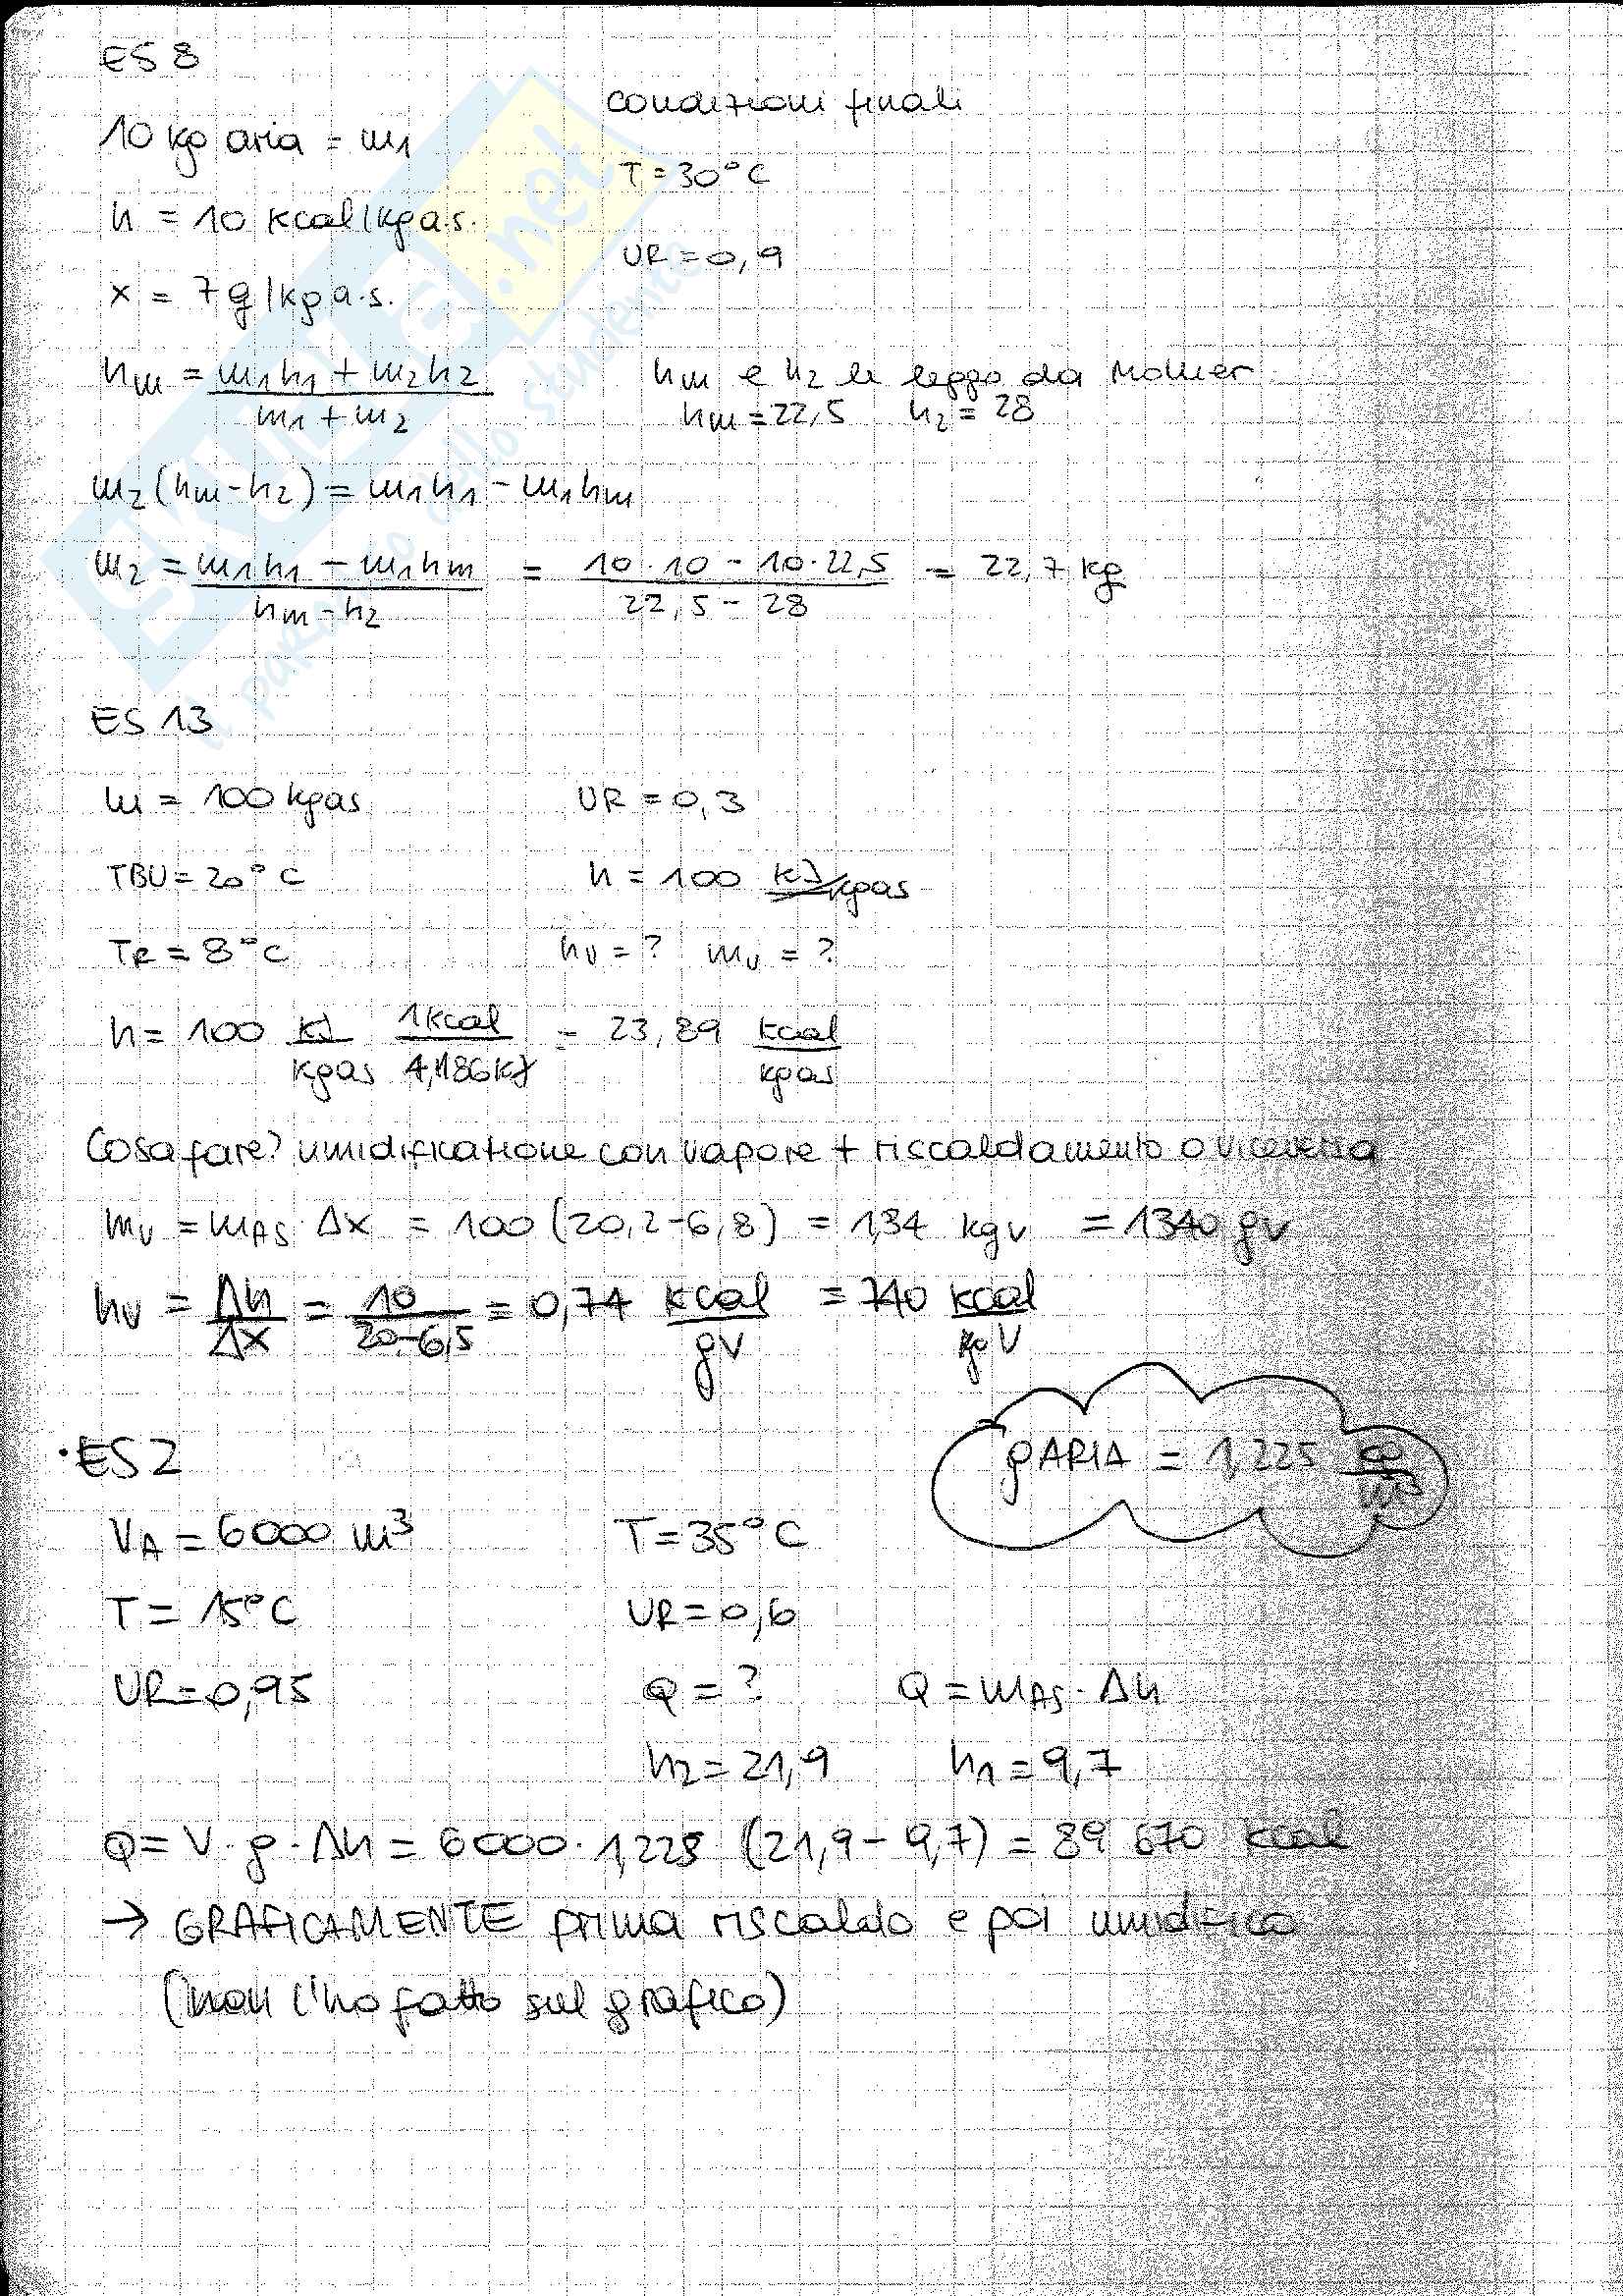 ES 8
condizioni finali
10 kg aria = m1
T = 30°C
h = 10 kcal/kga.s.
UR = 0,9
x = 7g/kg a.s.
hm = m1h1 + m2h2 / m1 + m2
hm e h2 le leggo da Mollier
hm = 22,5 h2 = 28
m2 (hm - h2) = m1h1 - m1hm
m2 = m1h1 - m1hm / hm - h2 = 10·10 - 10·22,5 / 22,5 - 28 = 22,7 kg
ES 13
m = 100 kgas UR = 0,3
TBU = 20°C h = 100 kJ/kgas
TR = 8°C hv = ? mv = ?
h = 100 kJ/kgas 1kcal/4,186kJ = 23,89 kcal/kgas
Cosa fare? umidificazione con vapore + riscaldamento o viceversa
mv = mAS · Δx = 100 (20,2 - 6,8) = 1,34 kgv = 1340 gv
hv = Δh/Δx = 10/20-6,5 = 0,74 kcal/gv = 740 kcal/kgV
· ES 2
ρARIA = 1,225 kg/m3
VA = 6000 m3 T = 35°C
T = 15°C UR = 0,6
UR = 0,95 Q = ? Q = mAS · Δh
h2 = 21,9 h1 = 9,7
Q = V · ρ · Δh = 6000 · 1,225 (21,9 - 9,7) = 89 670 kcal
→ GRAFICAMENTE prima riscaldo e poi umidifico
(non l'ho fatto sul grafico)
SKUOLA.net
il paradiso dello studente